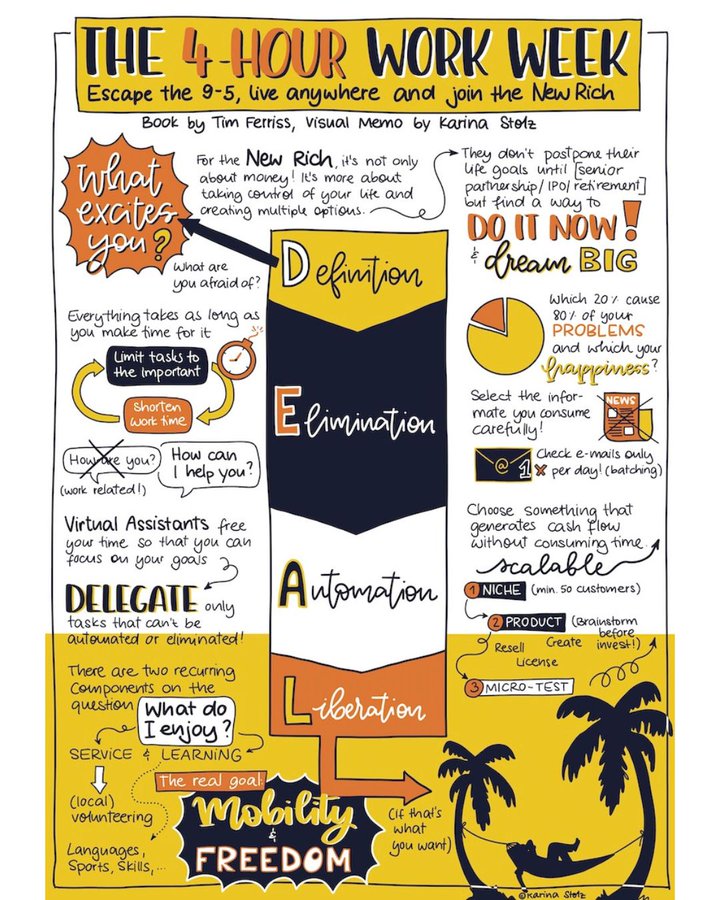 THE 4-HOUR WORK WEEK
Escape the 9-5, live anywhere and join the New Rich
Book by Tim Ferriss, Visual Memo by Karina Stolz
What
excites
you?
For the New Rich, it's not only
about money! It's more about
taking control of your life and
creating multiple options.
They don't postpone their
life goals until [senior
partnership/IPO/retirement]
but find a way to
DO IT NOW!
& dream BIG
What are
you afraid of?
Definition
Everything takes as long as
you make time for it
Limit tasks to
the important
Shorten
work time
Which 20% cause
80% of your
PROBLEMS
and which your
happiness?
Select the infor-
mate you consume
carefully!
NEWS
Elimination
How are you?
(work related!)
How can
I help you?
@
Check e-mails only
1x per day! (batching)
Virtual Assistants free
your time so that you can
focus on your goals
DELEGATE only
tasks that can't be
automated or eliminated!
Automation
Choose something that
generates cash flow
without consuming time.
scalable
1 NICHE (min. 50 customers)
2 PRODUCT (Brainstorm
before
invest!)
Resell
Create
License
3 MICRO-TEST
There are two recurring
components on the
question
What do
I enjoy?
SERVICE & LEARNING
(local)
volunteering
Languages,
Sports, Skills,...
Liberation
The real goal:
Mobility
&
FREEDOM
(if that's
what
you want)
©Karina Stolz